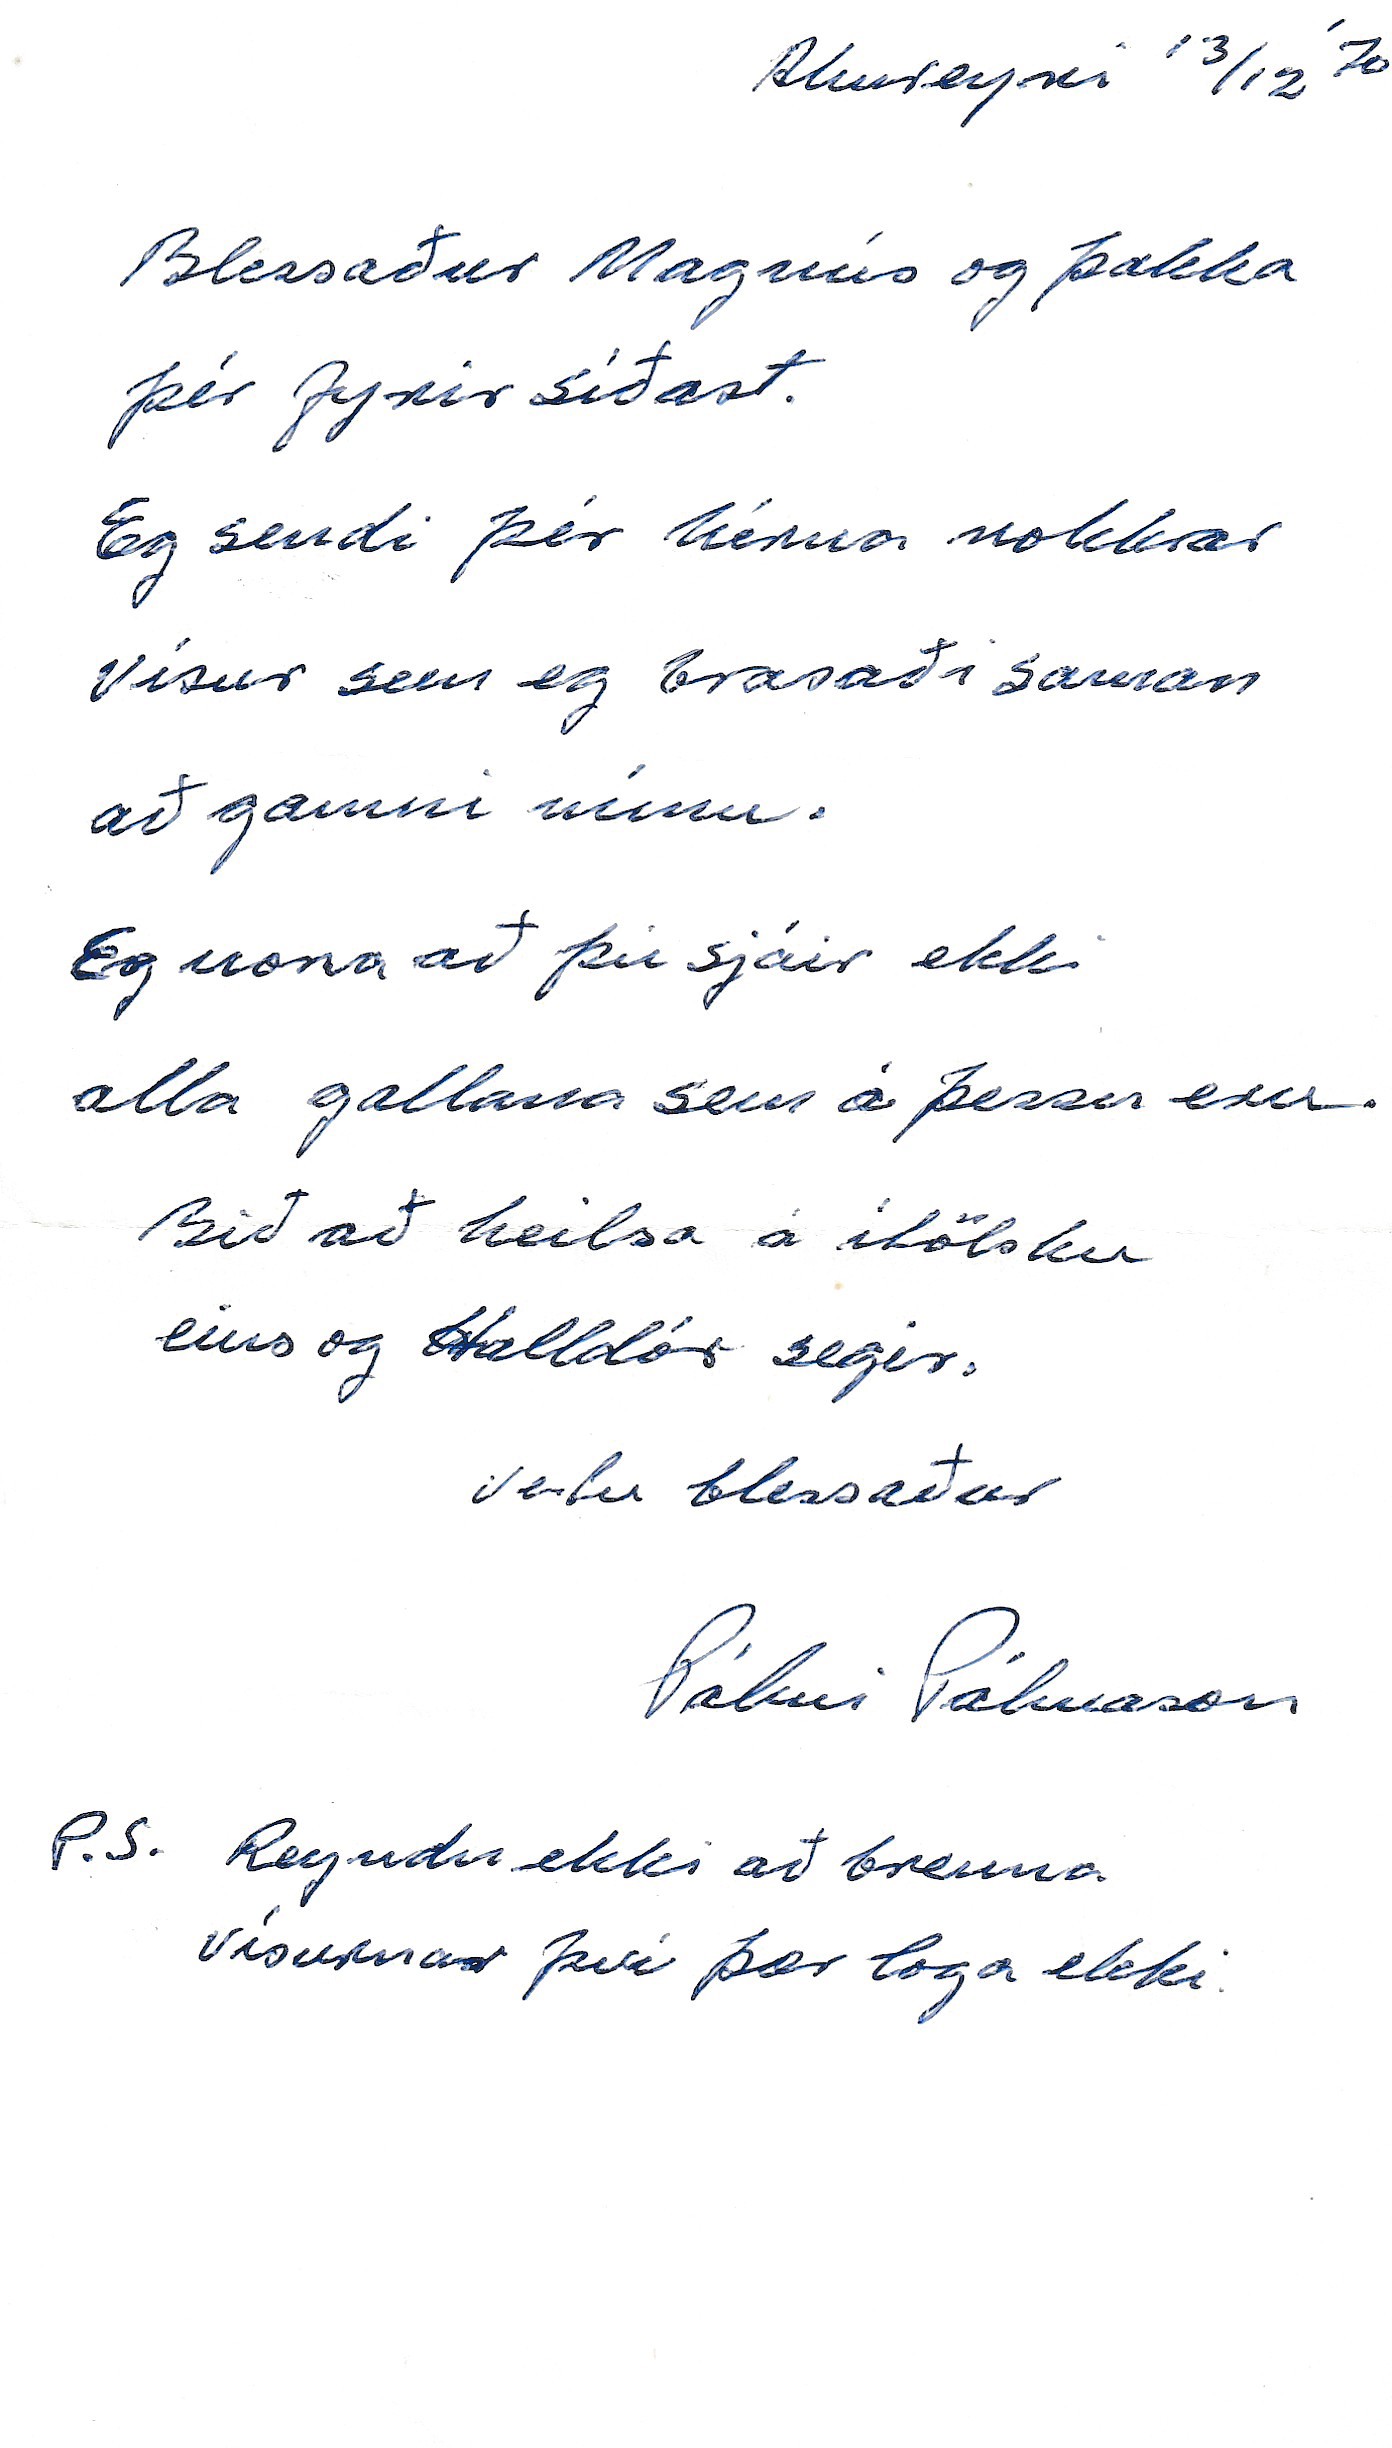 Akureyri 13/12 '70
Blessaður Magnús og þakka
þér fyrir síðast.
Eg sendi þér hérna nokkrar
vísur sem eg brasaði saman
að gamni mínu.
Eg vona að þú sjáir ekki
alla gallana sem á þessu eru.
Bið að heilsa á ítölsku
eins og Halldór segir.
Vertu blessaður
Pálmi Pálmason
P.S. Reyndu ekki að brenna
vísurnar því þær loga ekki.